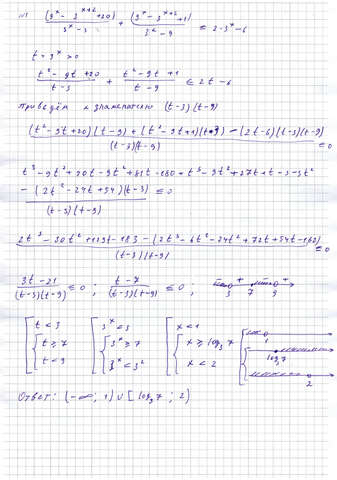 (9^x - 3^(x+2) + 20) / (3^x - 3) + (9^x - 3^(x+2) + 1) / (3^x - 9) ≤ 2·3^x - 6
t = 3^x > 0
(t² - 9t + 20) / (t - 3) + (t² - 9t + 1) / (t - 9) ≤ 2t - 6
Приведём к знаменателю (t-3)(t-9)
((t² - 9t + 20)(t - 9) + (t² - 9t + 1)(t - 3) - (2t - 6)(t-3)(t-9)) / ((t-3)(t-9)) ≤ 0
t³ - 9t² + 20t - 9t² + 81t - 180 + t³ - 9t² + 27t + t - 3 - 3t²
- (2t² - 24t + 54)(t-3) ≤ 0
(t-3)(t-9)
(2t³ - 30t² + 129t - 183 - (2t³ - 6t² - 24t² + 72t + 54t - 162)) / ((t-3)(t-9)) ≤ 0
(3t - 21) / ((t-3)(t-9)) ≤ 0 ; (t - 7) / ((t-3)(t-9)) ≤ 0 ; - + - + 3 7 9
[ t < 3 [ 3^x < 3 [ x < 1 1
{ t ≥ 7 { 3^x ≥ 7 { x ≥ log₃ 7 log₃ 7
{ t < 9 { 3^x < 3² { x < 2 2
Ответ: (-∞; 1) ∪ [log₃ 7 ; 2)